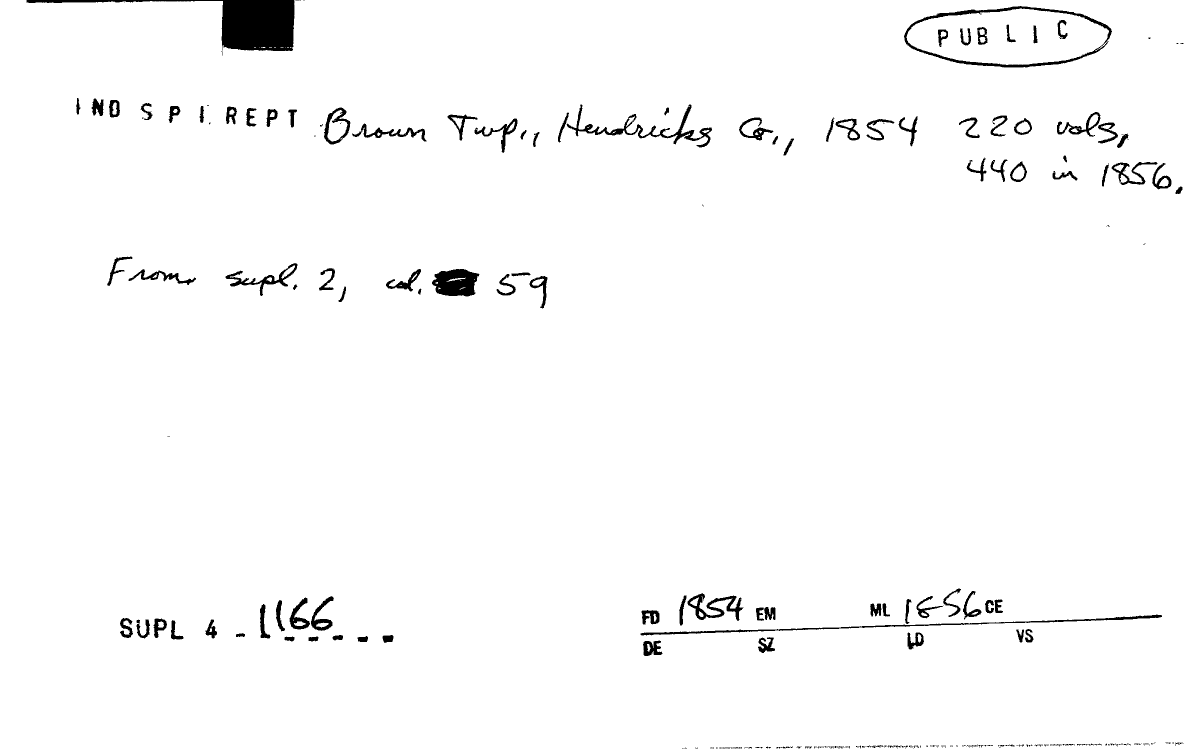 PUBLIC
IND SPI REPT Brown Twp., Hendricks Co., 1854 220 vols,
440 in 1856.
From supl. 2, col. 59
SUPL 4 - 1166
FD 1854 EM ML 1856 CE
DE SZ LD VS